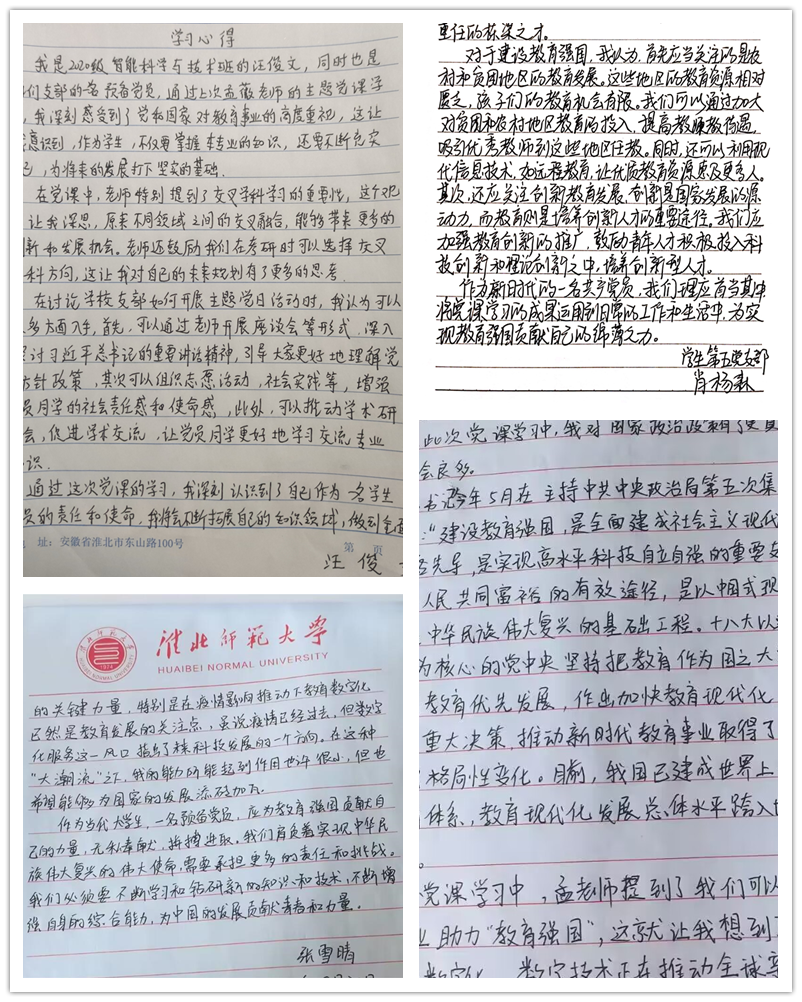 学习心得
我是2020级智能科学与技术班的汪俊文，同时也是
们支部的一名预备党员，通过上次孟薇老师的主题党课学
，我深刻感受到了党和国家对教育事业的高度重视，这让
意识到，作为学生，不仅要掌握本专业的知识，还要不断充实
己，为将来的发展打下坚实的基础.
在党课中，老师特别提到了交叉学科学习的重要性，这个观
让我深思，原来不同领域之间的交叉融合，能够带来更多的
新和发展机会。老师还鼓励我们在考研时可以选择交叉
科方向，这让我对自己的未来规划有了更多的思考.
在讨论学校支部如何开展主题党日活动时，我认为可以
多方面入手，首先，可以通过老师开展座谈会等形式，深入
讨习近平总书记的重要讲话精神，引导大家更好地理解党
方针政策，其次可以组织志愿活动，社会实践等，增强
员同学的社会责任感和使命感，此外，可以推动学术研
会，促进学术交流，让党员同学更好地学习交流专业
识.
通过这次党课的学习，我深刻认识到了自己作为一名学生
员的责任和使命，我将会不断拓展自己的知识领域，做到全面
址：安徽省淮北市东山路100号
第 页
汪俊
重任的栋梁之才。
对于建设教育强国，我认为，首先应当关注的是农
村和贫困地区的教育发展。这些地区的教育资源相对
匮乏，孩子们的教育机会有限。我们可以通过加大
对贫困和农村地区教育的投入，提高教师教待遇，
吸引优秀教师到这些地区任教。同时，还可以利用现
代信息技术，如远程教育，让优质教育资源惠及更多人。
其次，还应关注创新教育发展，创新是国家发展的源
动力，而教育则是培养创新人才的重要途径。我们应
加强教育创新的推广，鼓励青年人才积极投入科
技创新和理论创新之中，培养创新型人才。
作为新时代的一名共产党员，我们理应肩当其中
将党课学习的成果运用到日常的工作和生活中，为实
现教育强国贡献自己的绵薄之力。
学生第五党支部
肖杨森
淮北师范大学
HUAIBEI NORMAL UNIVERSITY
的关键力量，特别是在疫情影响推动下教育数字化
已然是教育发展的关注点，虽说疫情已经过去，但数字
化服务这一风口指出了科技发展的一个方向。在这种
“大潮流”之下，我的能力所能起到作用也许很小，但也
希望能够为国家的发展添砖加瓦.
作为当代大学生，一名预备党员，应为教育强国贡献自
己的力量，无私奉献，拼搏进取。我们肩负着实现中华民
族伟大复兴的伟大使命，需要承担更多的责任和挑战。
我们必须要不断学习和钻研新的知识和技术，不断增
强自身的综合能力，为中国的发展贡献青春和力量.
张雪晴
此次党课学习中，我对国家政治政策有了更
会良多。
书记今年5月在主持中共中央政治局第五次集
：“建设教育强国，是全面建成社会主义现代
先导，是实现高水平科技自立自强的重要支
人民共同富裕的有效途径，是以中国式现
中华民族伟大复兴的基础工程。十八大以
为核心的党中央坚持把教育作为国之大
教育优先发展，作出加快教育现代化
重大决策，推动新时代教育事业取得了
格局性变化。目前，我国已建成世界上
体系，教育现代化发展总体水平跨入
党课学习中，孟老师提到了我们可以
业助力“教育强国”，这就让我想到
数字化，数字技术正在推动全球